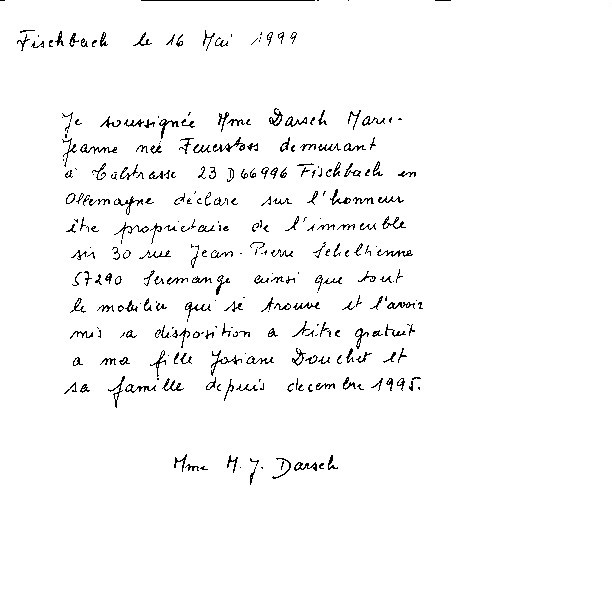 Fischbach le 16 Mai 1999
Je soussignée Mme Darsch Marie-
Jeanne née Feuerstoss demeurant
à Talstrasse 23 D66996 Fischbach en
Allemagne déclare sur l'honneur
être propriétaire de l'immeuble
sis 30 rue Jean-Pierre
57290 Seremange ainsi que tout
le mobilier qui se trouve et l'avoir
mis a disposition a titre gratuit
a ma fille Josiane Douchet et
sa famille depuis decembre 1995.
Mme M. J. Darsch